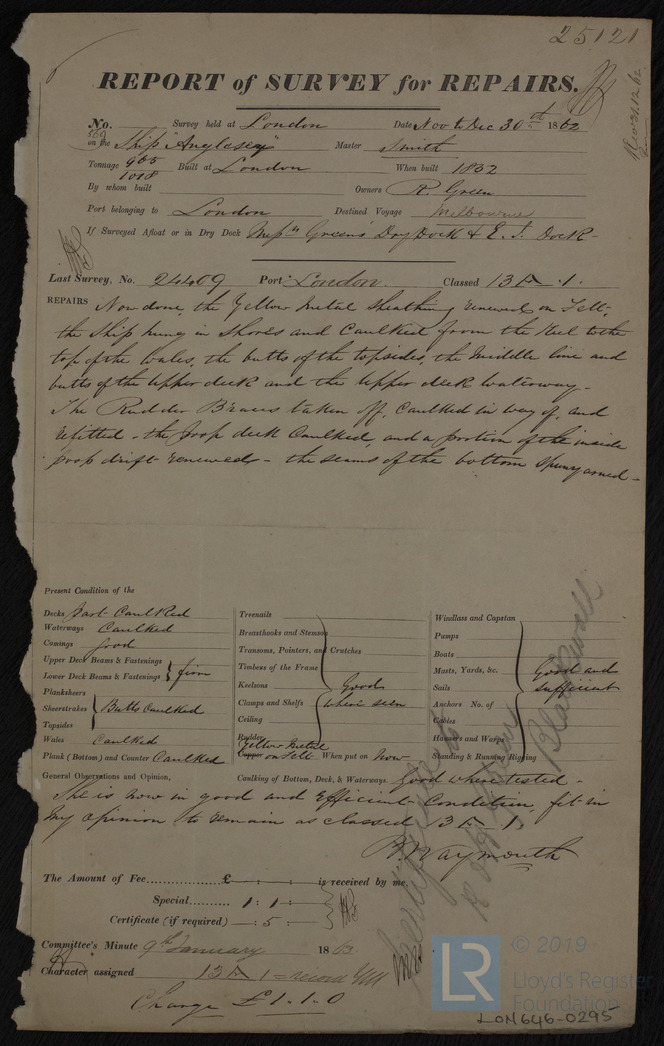 25121
REPORT of SURVEY for REPAIRS.
No. 569 Survey held at London Date Nov to Dec 30th 1862
on the Ship "Anglesey" Master Smith
Tonnage 965 1018 Built at London When built 1852
By whom built Owners R. Green
Port belonging to London Destined Voyage Melbourne
If Surveyed Afloat or in Dry Dock Mess.rs Greens Dry Dock & E. I. Dock
Last Survey, No. 24409 Port London Classed 13 A 1.
REPAIRS Now done, the Yellow Metal sheathing renewed on Felt,
the Ship hung in Shores and Caulked from the Keel to the
top of the Wales, the butts of the topsides, the Middle line and
butts of the Upper deck and the Upper deck Waterway -
The Rudder Braces taken off, Caulked in way of, and
refitted - the poop deck Caulked, and a portion of the inside
poop drift renewed - the seams of the bottom Spunyarned -
Present Condition of the
Decks Part Caulked
Waterways Caulked
Comings Good
Upper Deck Beams & Fastenings
Lower Deck Beams & Fastenings firm
Planksheers
Sheerstrakes Butts Caulked
Topsides
Wales Caulked
Plank (Bottom) and Counter Caulked
Treenails
Breasthooks and Stemson
Transoms, Pointers, and Crutches
Timbers of the Frame
Keelsons Good
Clamps and Shelfs where seen
Ceiling
Rudder
Yellow Metal
Copper on Felt When put on Now
Windlass and Capstan
Pumps
Boats
Masts, Yards, &c. Good and
Sails sufficient
Anchors No. of
Cables
Hawsers and Warps
Standing & Running Rigging
General Observations and Opinion, Caulking of Bottom, Deck, & Waterways. Good where tested -
She is now in good and Efficient Condition, fit in
my opinion to remain as classed 13 A 1
B. Waymouth
The Amount of Fee £ is received by me,
Special 1 : 1 :
Certificate (if required) : 5 :
Committee's Minute 9th January 1863
Character assigned 13 A 1
Charge £1.1.0
Blackwall
LR
© 2019
Lloyd's Register
Foundation
LON646-0295